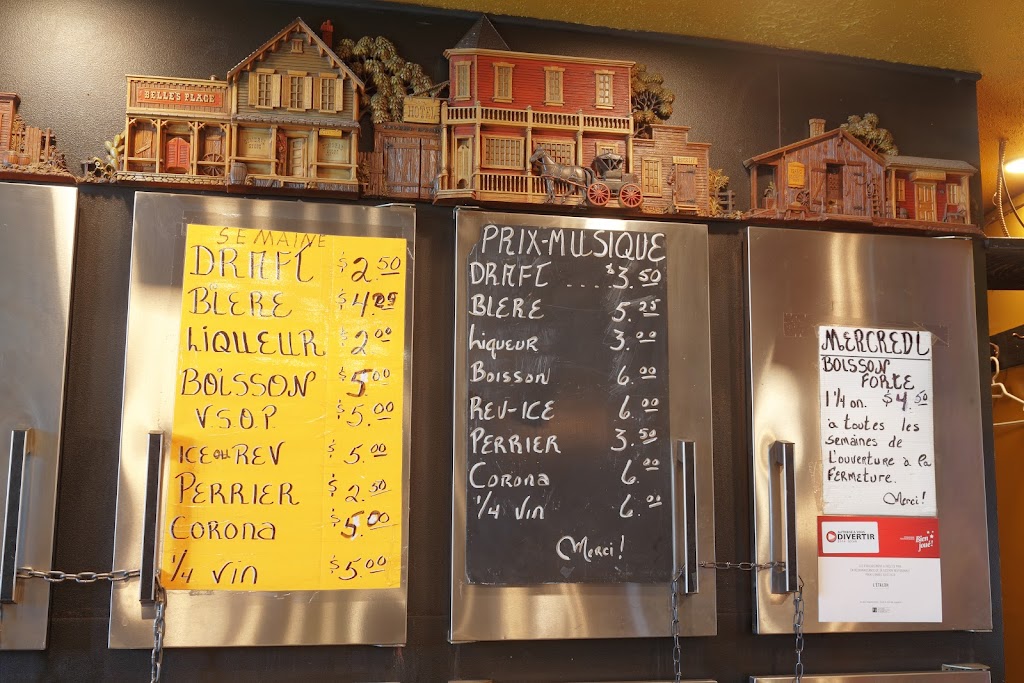 BELLE'S PLACE
HOTEL
SEMAINE
DRAFT $2.50
BIERE $4.25
LIQUEUR $2.00
BOISSON $5.00
V.S.O.P. $5.00
ICE ou REV $5.00
PERRIER $2.50
CORONA $5.00
1/4 vin $5.00
PRIX-MUSIQUE
DRAFT ....$3.50
BIERE 5.25
Liqueur 3.00
Boisson 6.00
REV-ICE 6.00
PERRIER 3.50
Corona 6.00
1/4 vin 6.00
Merci!
MERCREDI
BOISSON
FORTE
1 1/4 on. $4.50
à toutes les
semaines de
L'ouverture à la
Fermeture.
Merci!
DIVERTIR
Bien
joué!